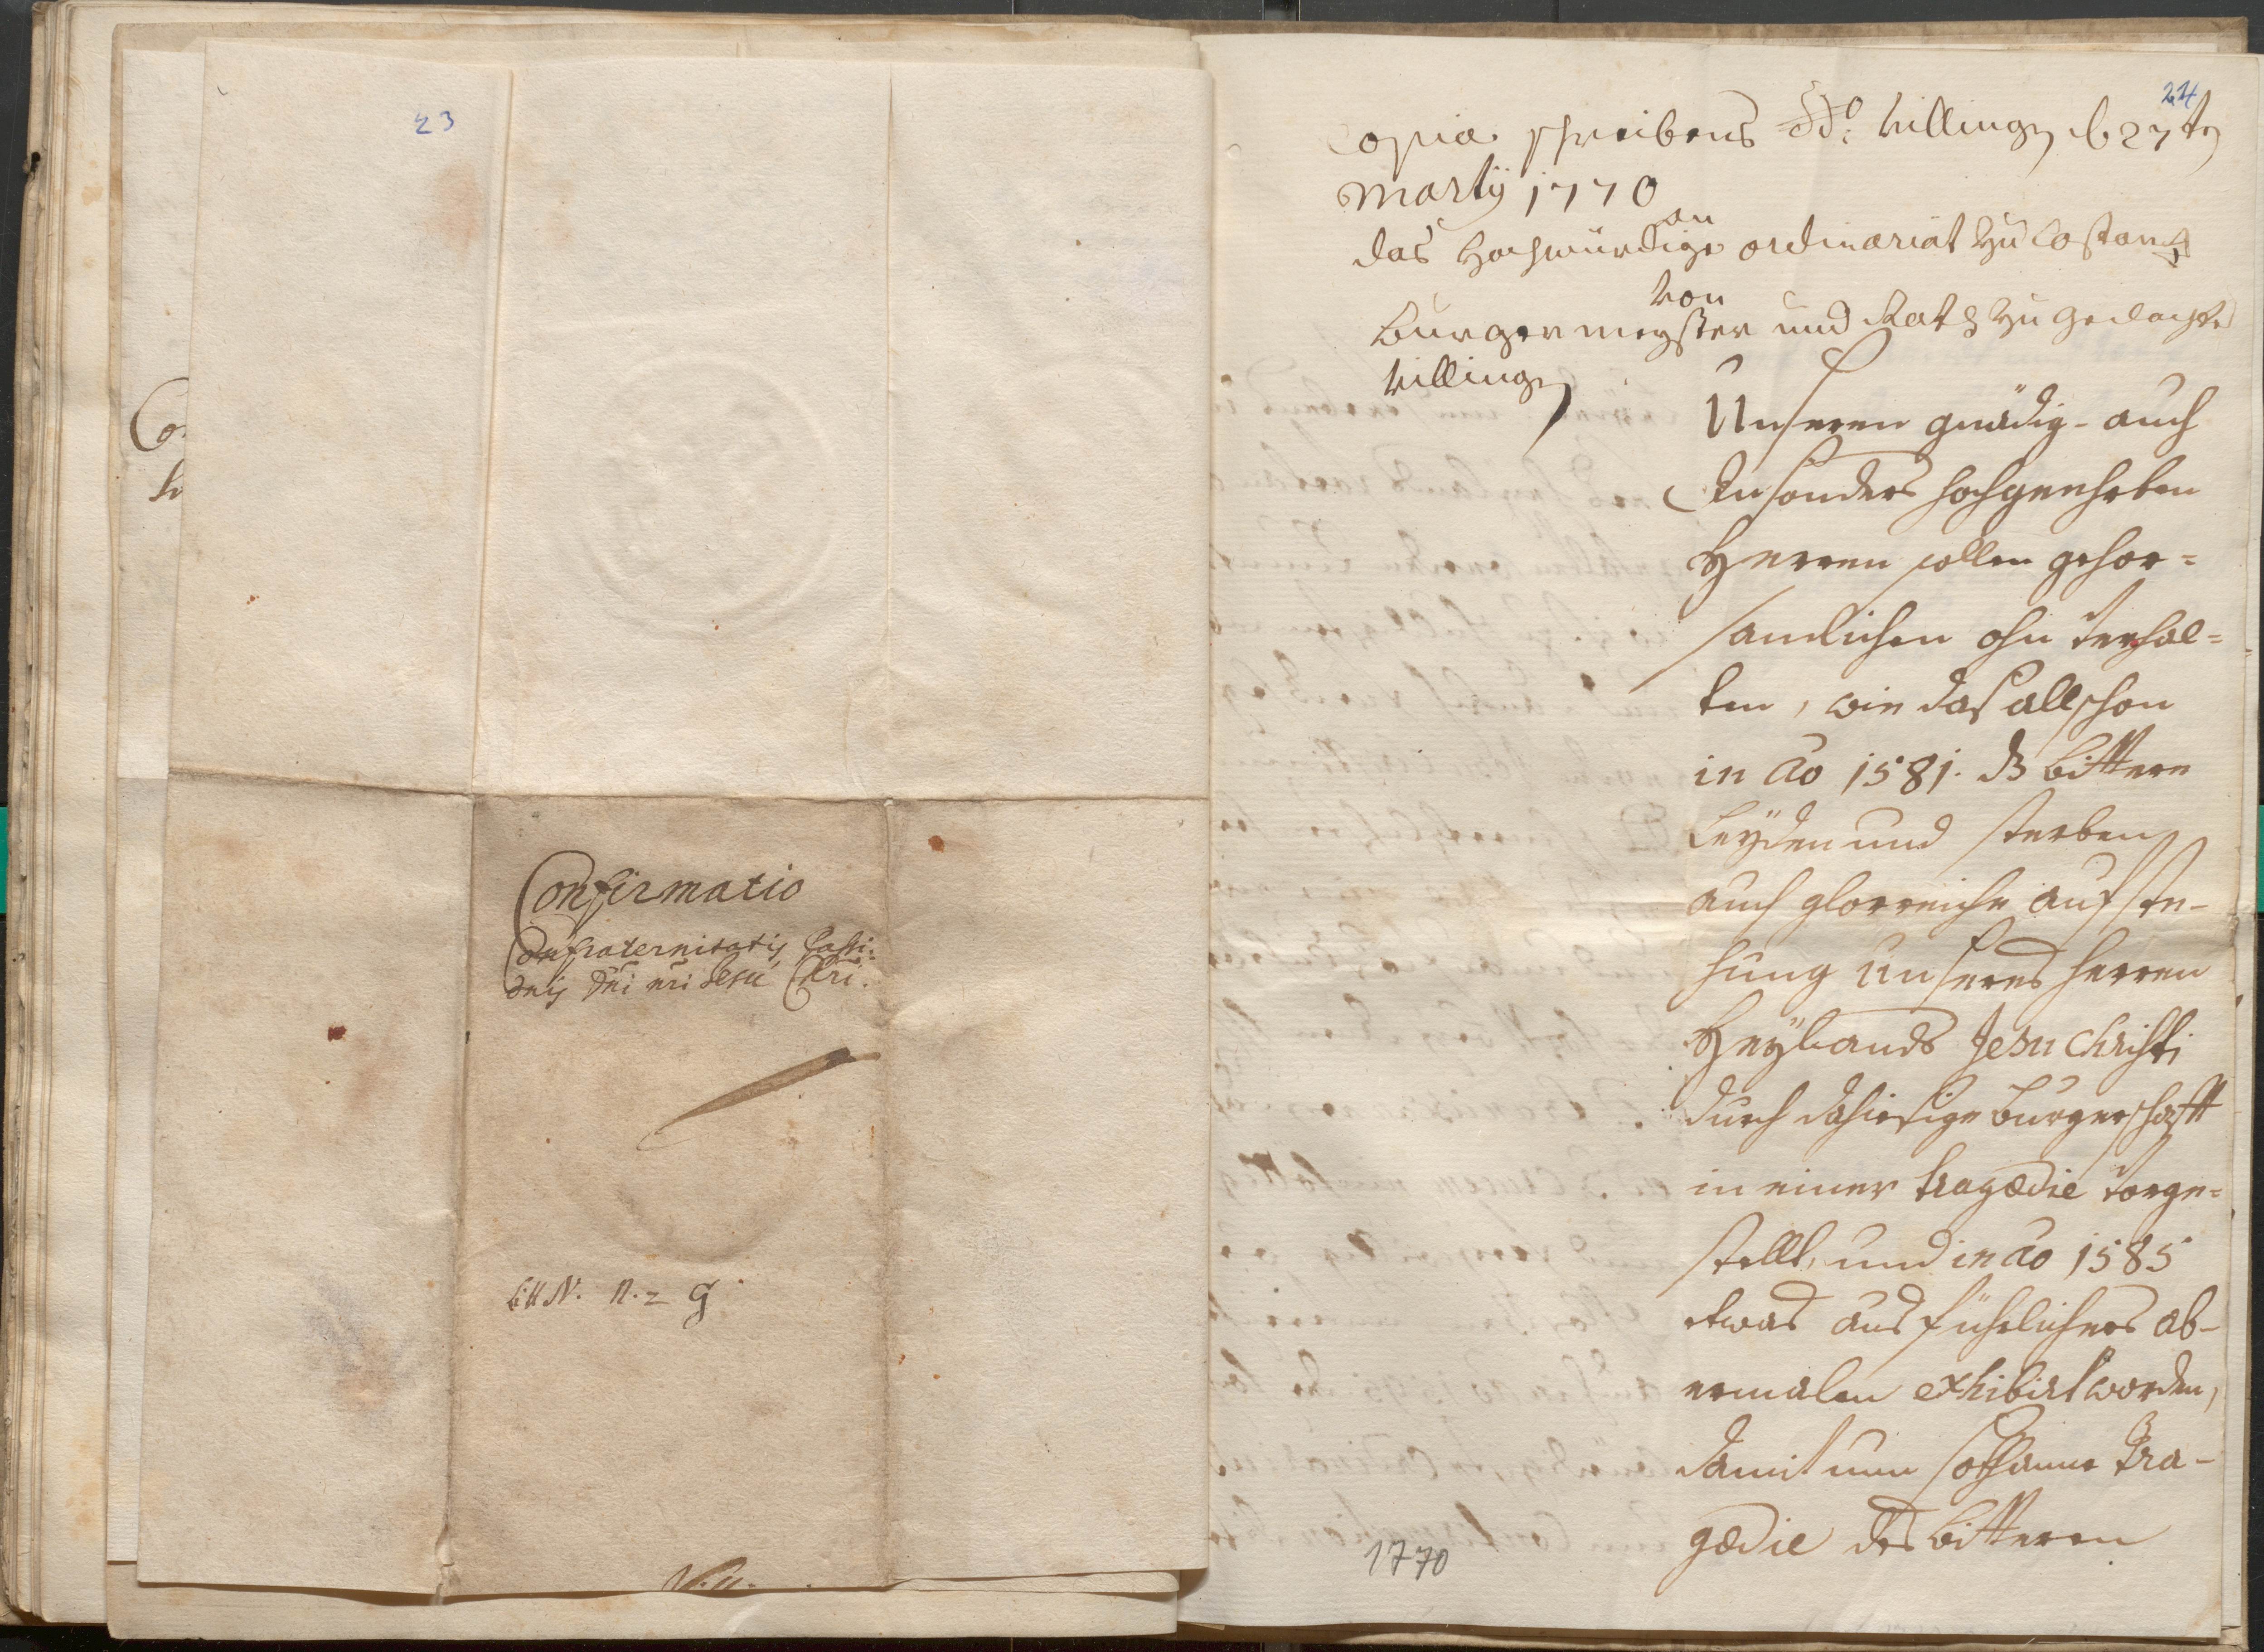 23
Confirmatio
Confraternitatis Passi-
onis Dñi nri Jesu Chri.
Litt N. n. 2 G
24
Copia schreibens dd: Villingen d 27ten
Martij 1770
an
das Hochwürdige ordinariat zu Costantz
von
Burgermeyster und Rath zu gedachten
Villingen
Unseren gnädig- auch
Insonders hochgeehrten
Herren sollen gehor-
samlichen ohn verhal-
ten, wie daß allschon
in Ao 1581. dz bittere
Leyden und sterben
auch glorreiche aufste-
hung Unseres Herren
Heylands Jesu Christi
durch dahiesige burgerschafft
in einer tragædie vorge-
stellt, und in Ao 1585
etwas ausführlichers ab-
ermalen exhibirt worden,
damit nun sothanne Tra-
gædie des bitteren
1770